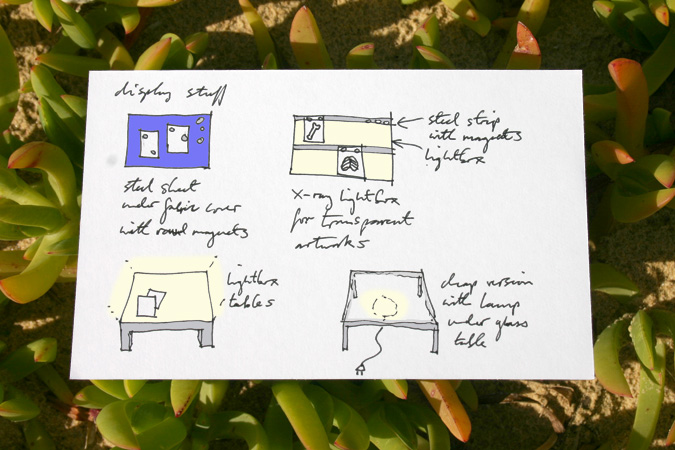 display stuff
steel sheet
under fabric cover
with round magnets
steel strip
with magnets
lightbox
x-ray lightbox
for transparent
artworks
lightbox
tables
cheap version
with lamp
under glass
table